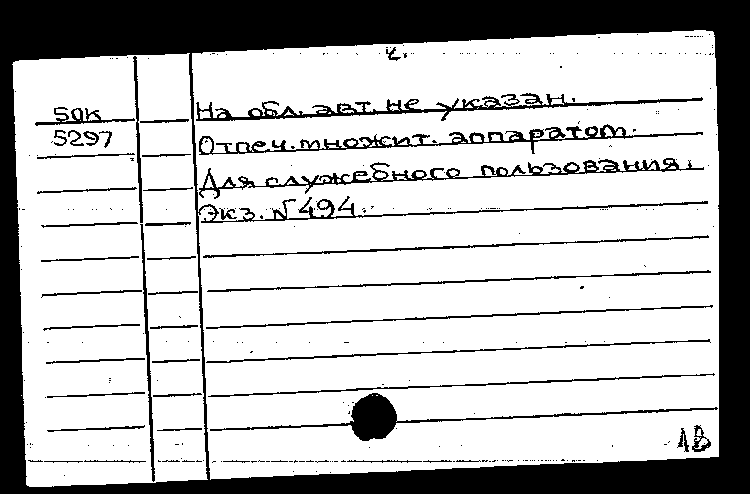 2.
50к На обл. авт. не указан.
5297 Отпеч. множит. аппаратом.
Для служебного пользования.
Экз. № 494.
АВ